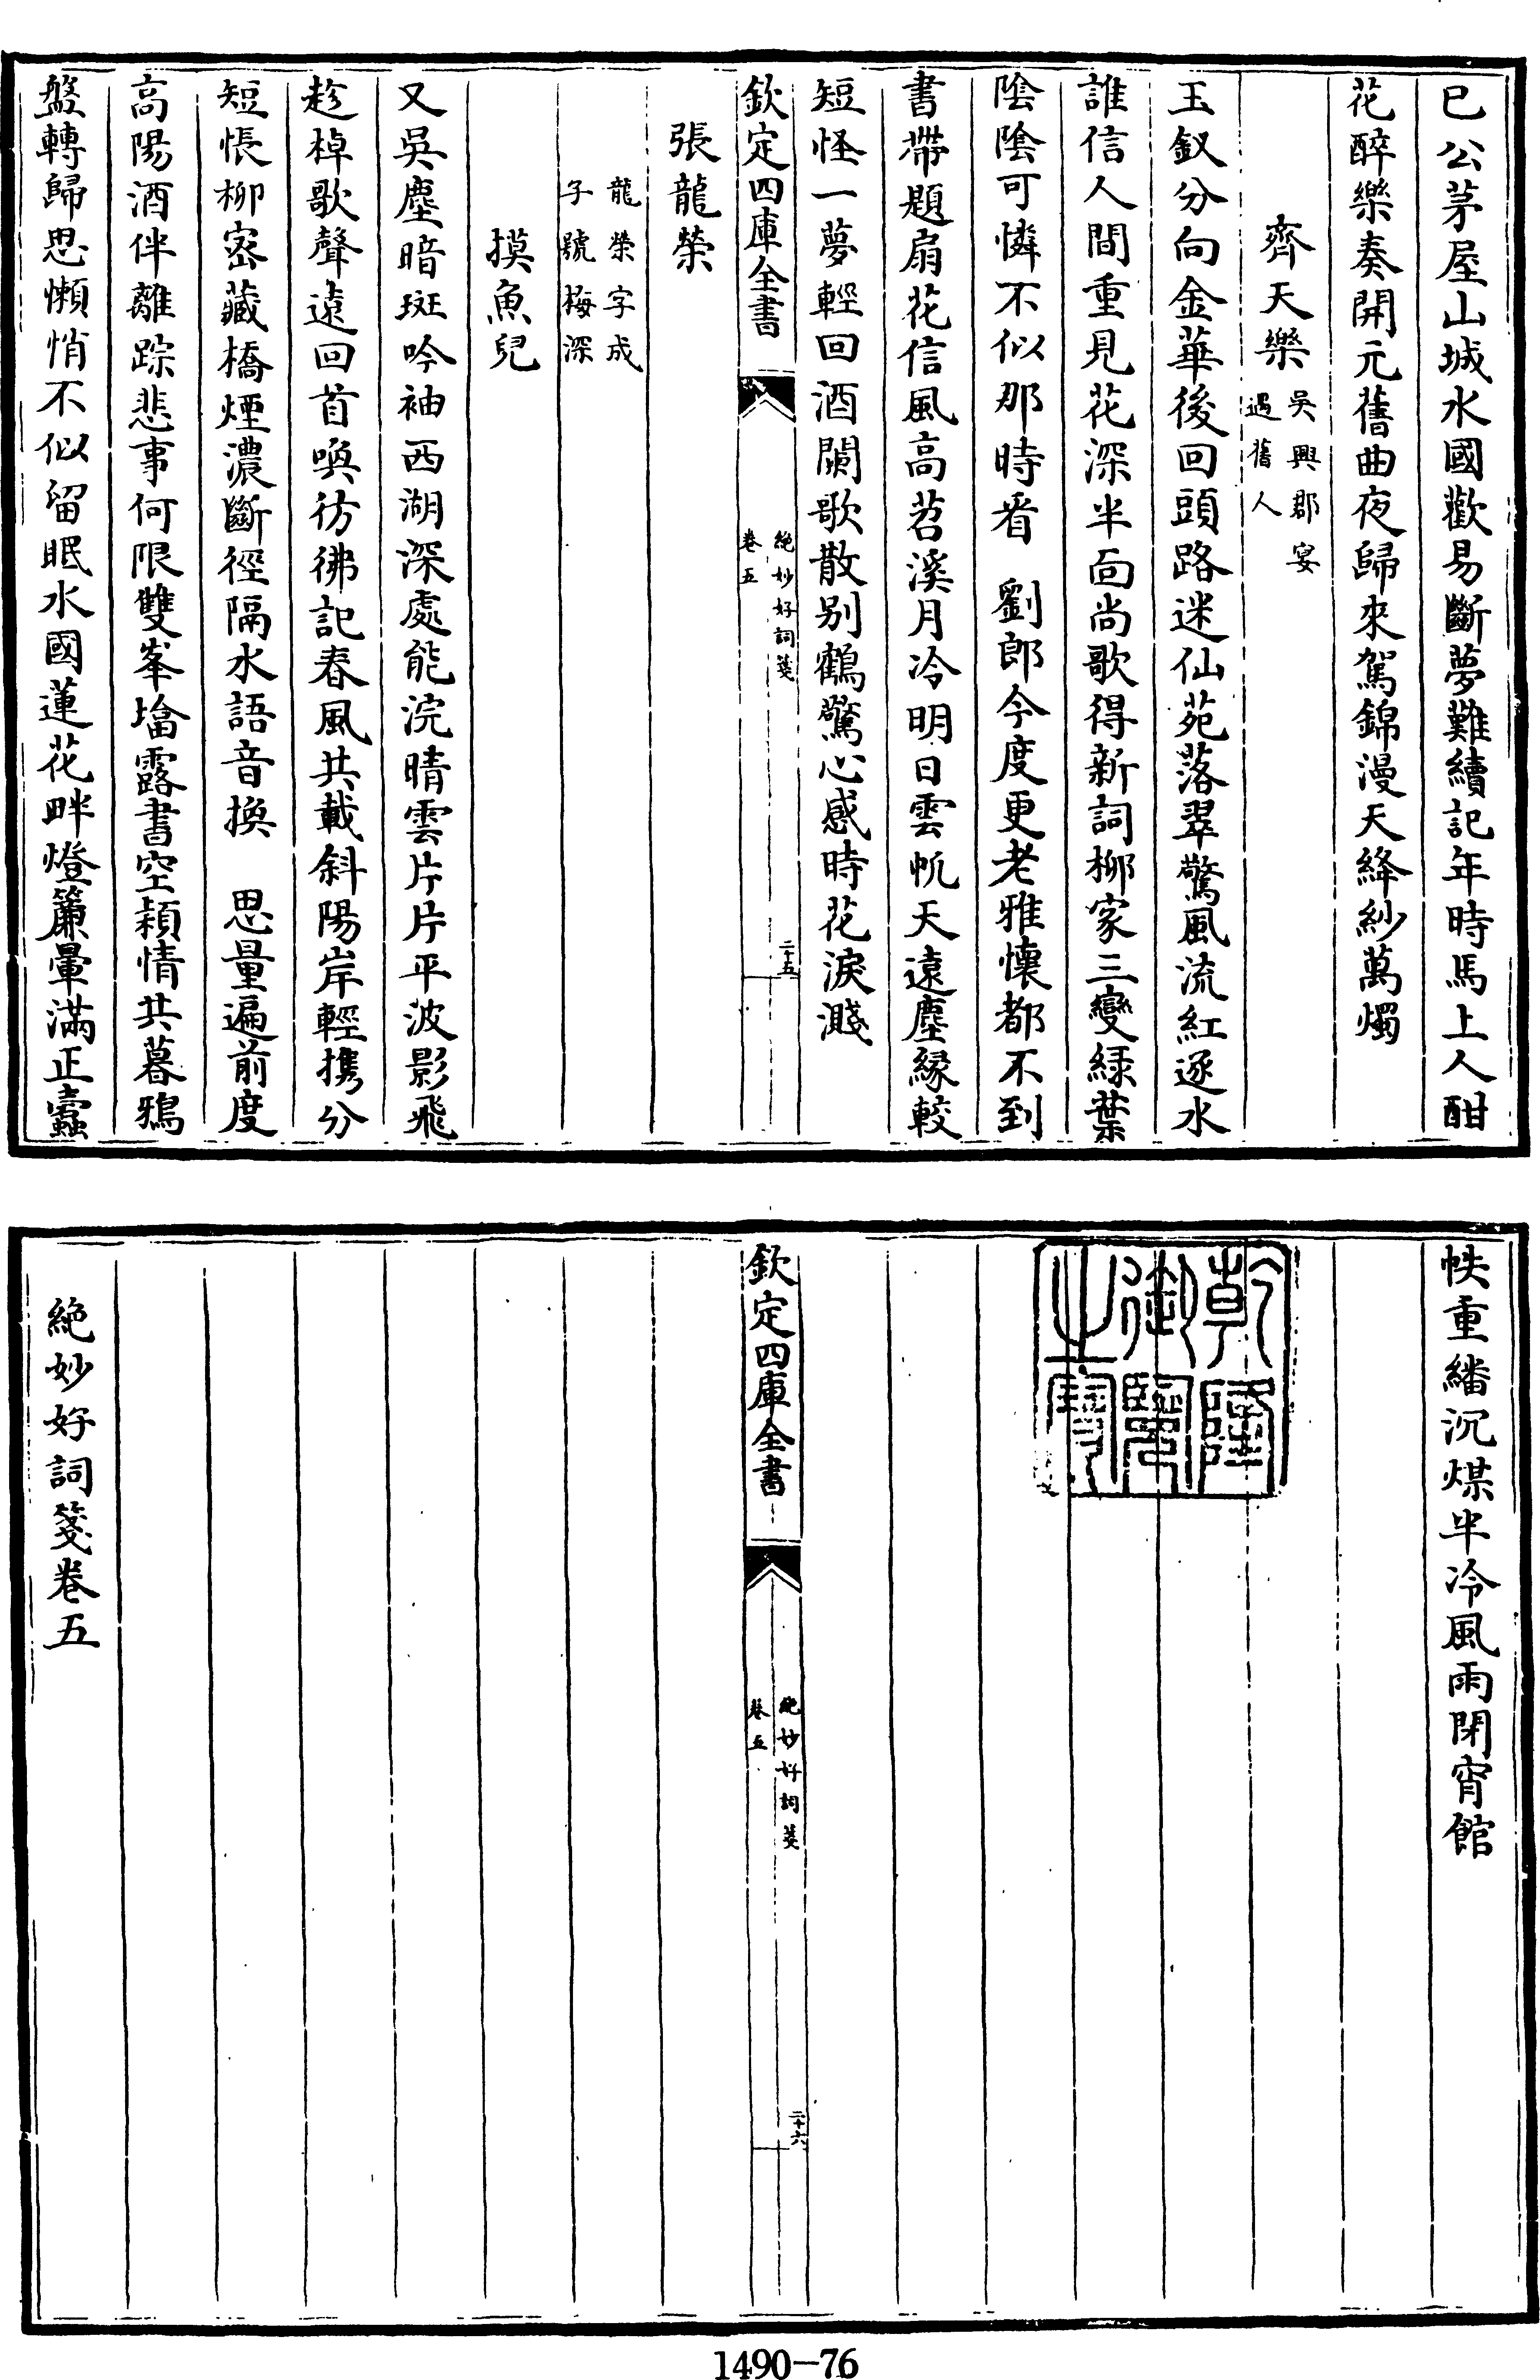 已公茅屋山城水國歡易斷夢難續記年時馬上人酣
花醉樂奏開元舊曲夜歸來駕錦漫天絳紗萬燭
齊天樂吳興郡宴
遇舊人
玉釵分向金華後回頭路迷仙苑落翠驚風流紅逐水
誰信人間重見花深半面尚歌得新詞柳家三變緑葉
陰陰可憐不似那時看 劉郎今度更老雅懷都不到
書帶題扇花信風高苕溪月冷明日雲帆天遠塵縁較
短怪一夢輕回酒闌歌散别鶴驚心感時花淚濺
欽定四庫全書
絶妙好詞箋
卷五
二十五
張龍榮
龍榮字成
子號梅深
摸魚兒
又吳塵暗斑吟袖西湖深處能浣晴雲片片平波影飛
趁棹歌聲遠回首喚彷彿記春風共載斜陽岸輕携分
短悵柳宻藏橋煙濃斷徑隔水語音換 思量遍前度
高陽酒伴離踪悲事何限雙峯墖露書空穎情共暮鴉
盤轉歸思懶悄不似留眠水國蓮花畔燈簾暈滿正蠧
帙重繙沉煤半冷風雨閉宵館
乾隆
御覽
之寶
欽定四庫全書
絶妙好詞箋
卷五
二十六
絶妙好詞箋卷五
1490-76